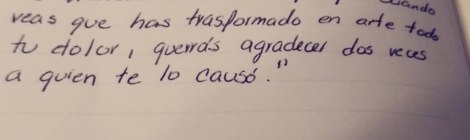 uando
veas que has trasformado en arte todo
tu dolor, querrás agradecer dos veces
a quien te lo causó."